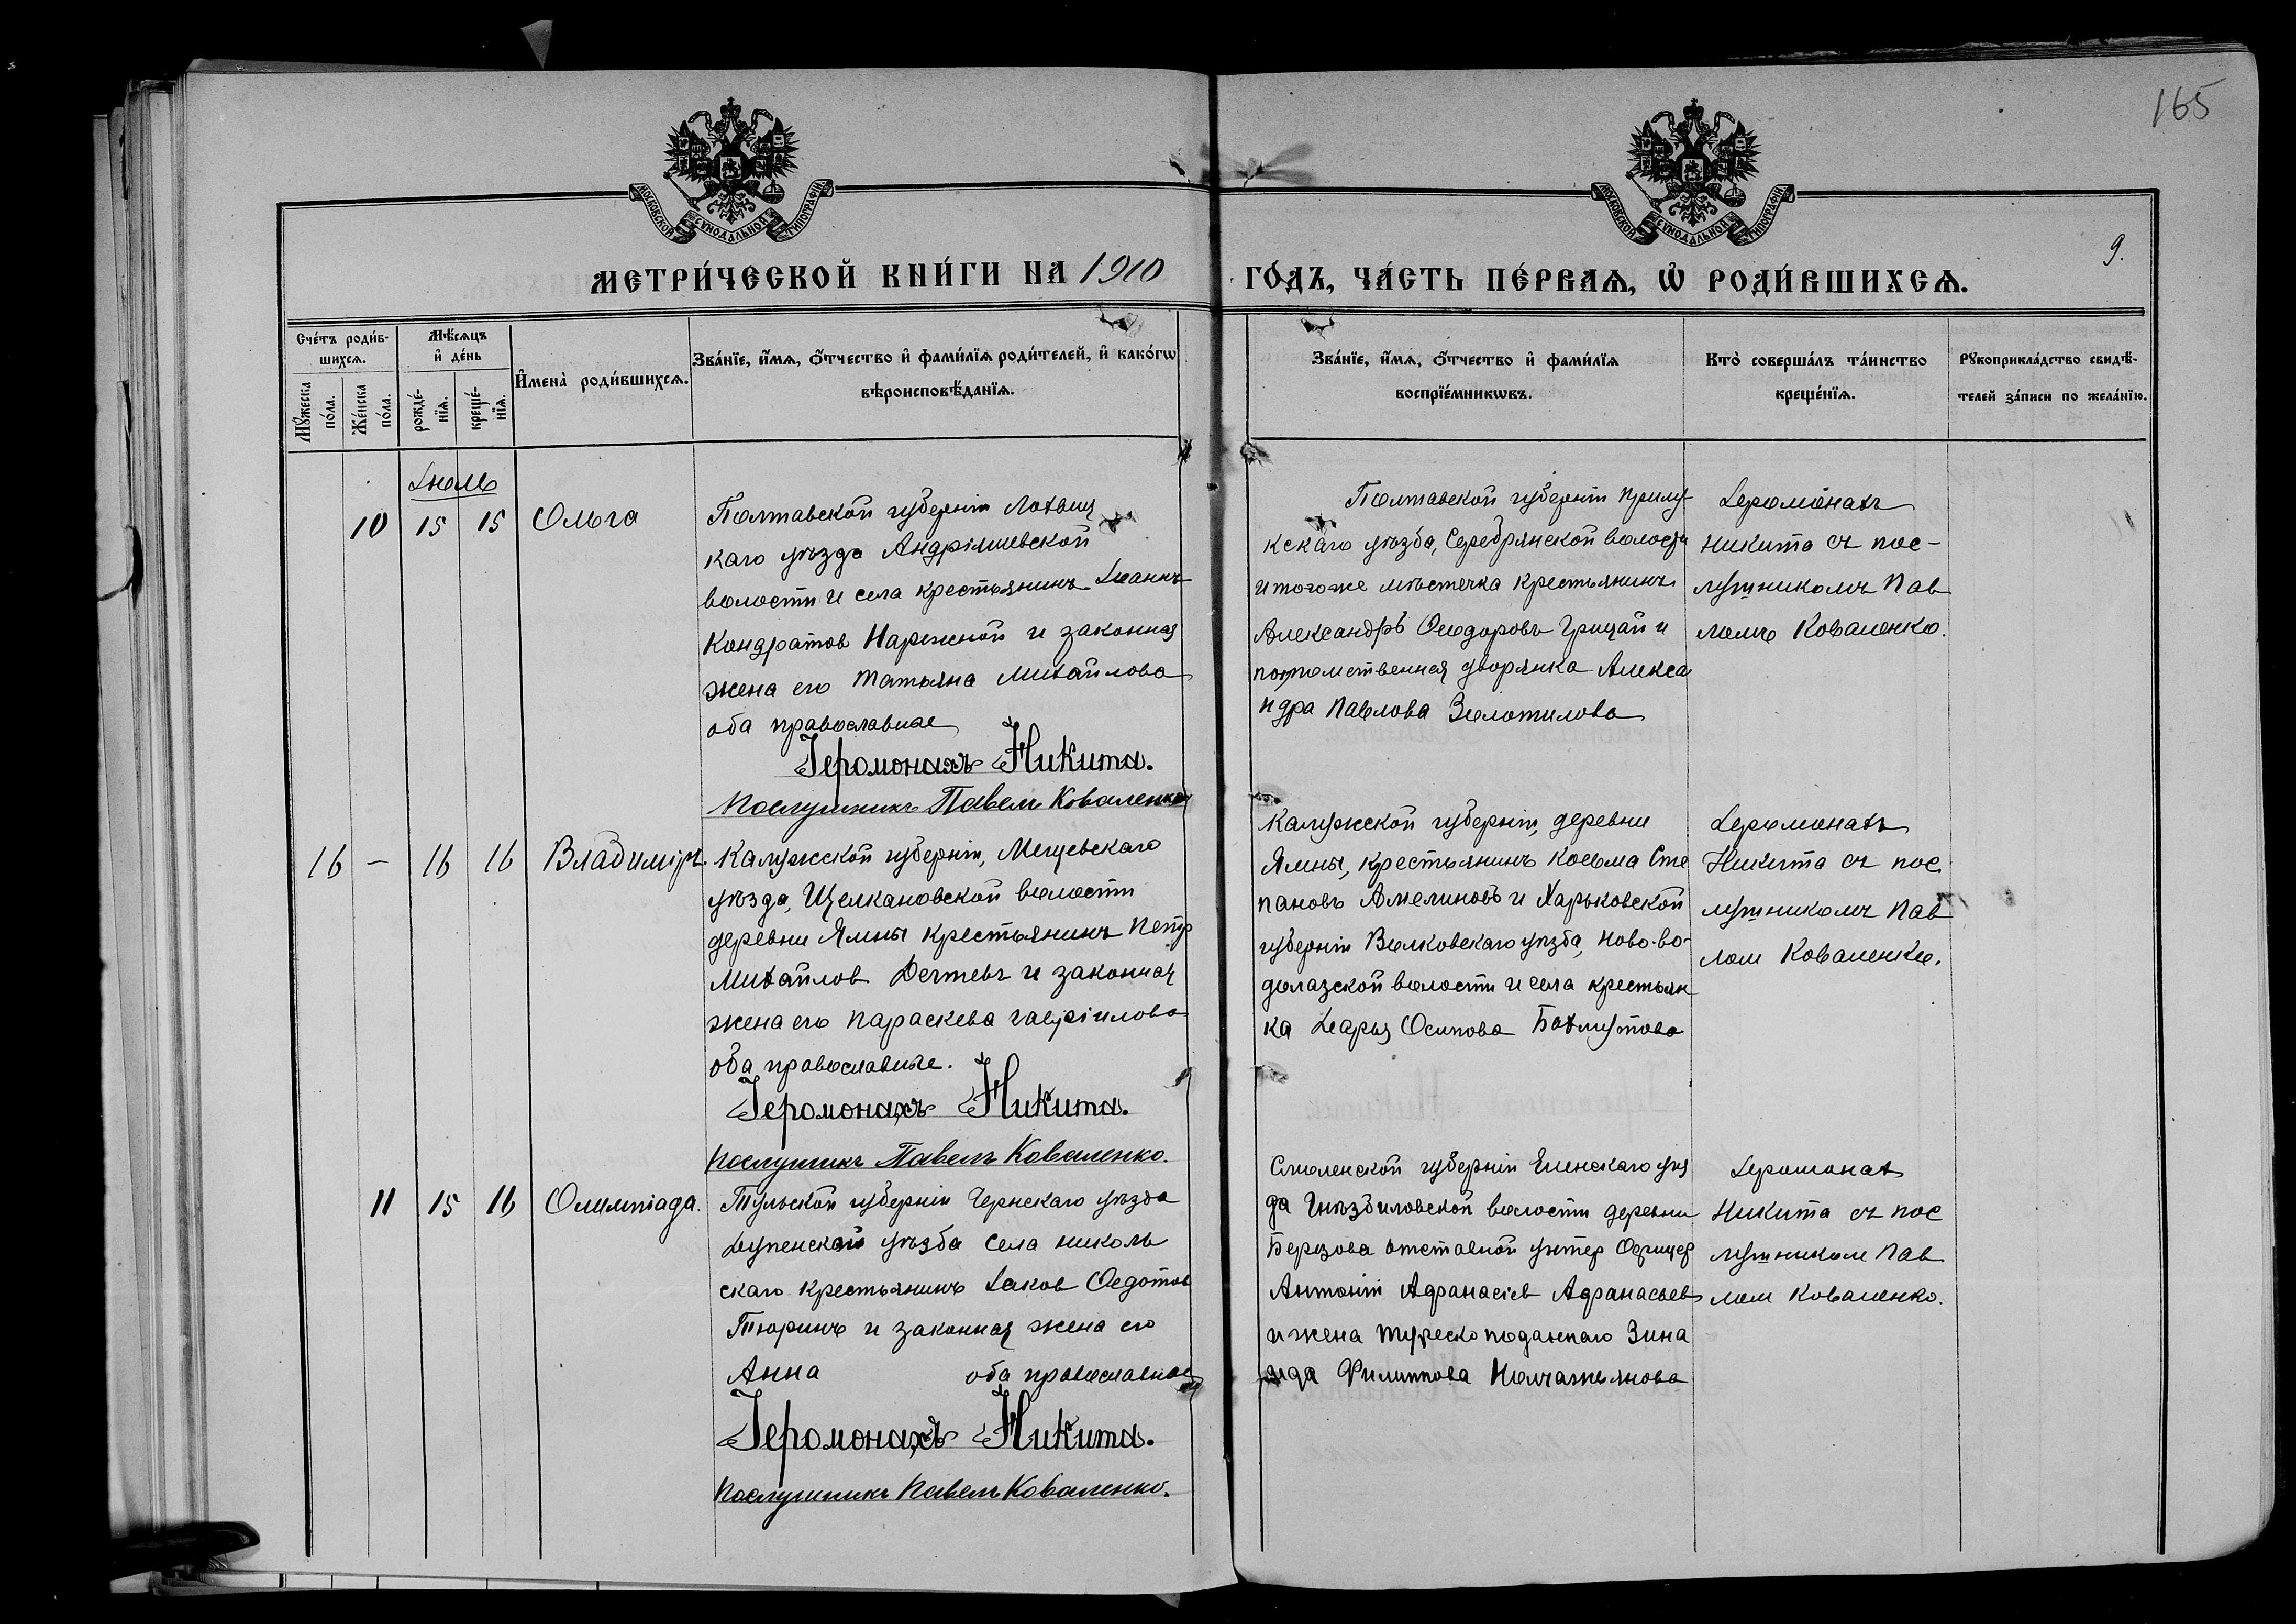 165
МОСКОВСКОЙ СУНОДАЛЬНОЙ ТИПОГРАФІИ
МОСКОВСКОЙ СУНОДАЛЬНОЙ ТИПОГРАФІИ
9.
МЕТРИ́ЧЕСКОЙ КНИ́ГИ НА 1910
ГО́ДЪ, ЧА́СТЬ ПЕ́РВАѦ, Ѡ҆ РОДИ́ВШИХСѦ.
Сче́тъ роди́в-
шихсѧ.
Мꙋ́жеска
по́ла.
Же́нска
по́ла.
Мѣ́сѧцъ
и҆ де́нь
рожде́-
нїѧ.
креще́-
нїѧ.
И҆мена̀ роди́вшихсѧ.
Зва́нїе, и҆́мѧ, ѻ҆́тчество и҆ фами́лїѧ роди́телей, и҆ како́гѡ
вѣроисповѣ́данїѧ.
Зва́нїе, и҆́мѧ, ѻ҆́тчество и҆ фами́лїѧ
воспрїе́мникѡвъ.
Кто̀ соверша́лъ та́инство
креще́нїѧ.
Рꙋкоприкла́дство свидѣ́-
телей за́писи по жела́нїю.
Іюль
10 15 15 Ольга
Полтавской губерніи Лохвиц
каго уѣзда Андріяшевской
волости и села крестьянинъ Іоаннъ
Кондратов Нарежной и законная
жена его Татьяна Михайлова
оба православные
Іеромонахъ Никита.
Послушникъ Павелъ Коваленко
Полтавской губерніи Прилу-
кскаго уѣзда, Серебрянской волости
и того же мѣстечка крестьянинъ
Александръ Ѳеодоровъ Грицай и
потомственная дворянка Алекса
ндра Павлова Золотилова
Іеромонахъ
Никита съ пос-
лушникомъ Пав
ломъ Коваленко.
16 – 16 16 Владиміръ.
Калужской губерніи, Мещевскаго
уѣзда, Щелкановской волости
деревни Ямны крестьянинъ Петр
Михайлов Дегтевъ и законная
жена его Параскева Гавріилова
оба православные.
Іеромонахъ Никита.
Послушникъ Павелъ Коваленко.
Калужской губерніи, деревни
Ямны, крестьянинъ Косьма Сте
пановъ Амелиновъ и Харьковской
губерніи Волковскаго уѣзда, Ново-во-
долазской волости и села крестьян
ка Дарья Осипова Бахмутова
Іеромонахъ
Никита съ пос
лушникомъ Пав
лом Коваленко.
11 15 16 Олимпіада.
Тульской губерніи Чернскаго уѣзда
уѣзда села николь
скаго крестьянинъ Іаков Ѳедотов
Тюринъ и законная жена его
Анна оба православные
Іеромонахъ Никита.
Послушникъ Павелъ Коваленко.
Смоленской губерніи Еленскаго уѣз
да Гнѣздиловской волости деревни
Березова отставной унтер Офицер
Антоній Афанасіев Афанасьев
и жена турецко подданнаго Зина
ида Филиппова
Іеромонах
Никита съ пос
лушником Пав
лом Коваленко.